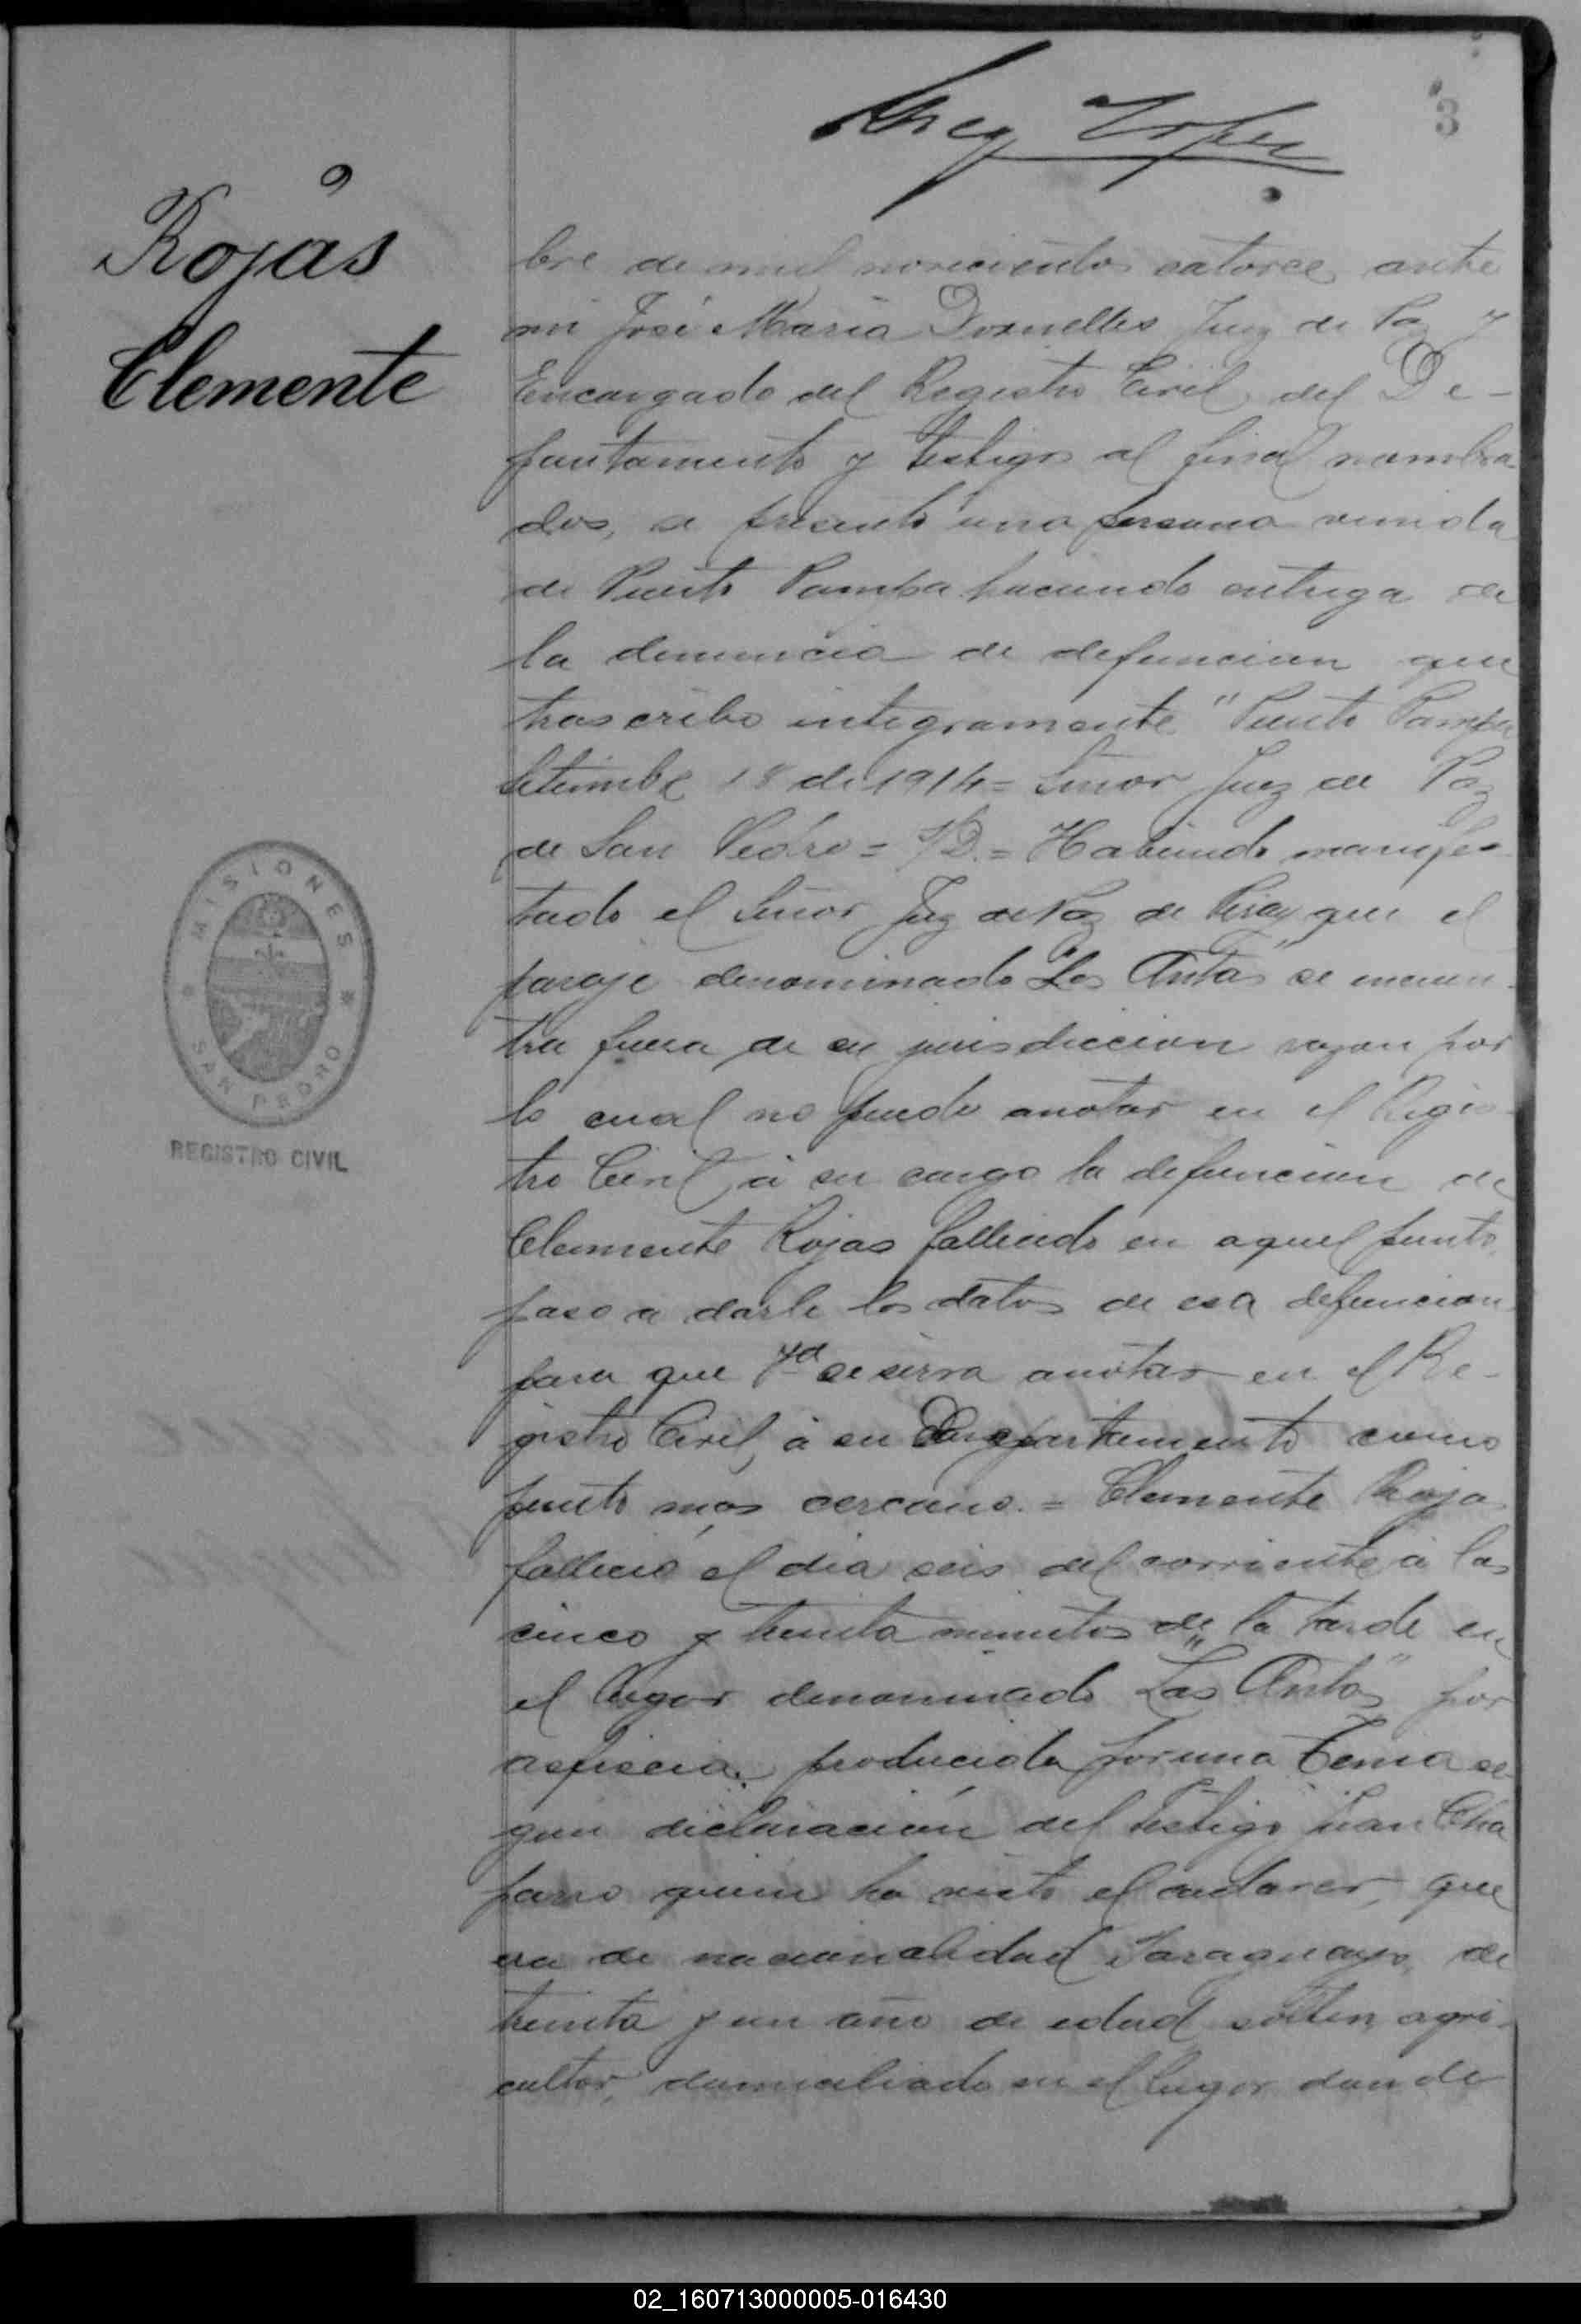 3
Rojas
Clemente
bre de mil novecientos catorce, ante
mi José Maria Dornelles Juez de Paz y
Encargado del Registro Civil del De-
partamento y testigos al final nombra
dos, se presentó una persona venida
de Puerto Pampa haciendo entrega de
la denuncia de defuncion que
trascribo integramente "Puerto Pampa
Setiembre 18 de 1914= Señor Juez de Paz
de San Pedro = S/D. = Habiendo manifes
tado el Señor Juez de Paz de Piray que el
paraje denominado "Las Antas" se encuen-
tra fuera de su jurisdiccion razon por
lo cual no puede anotar en el Regis-
tro Civil, á su cargo la defuncion de
Clemente Rojas fallecido en aquel punto,
paso a darle los datos de esa defuncion
para que Vd se sirva anotar en el Re-
gistro Civil, á su Departamento como
punto más cercano. = Clemente Rojas
falleció el dia seis del corriente á las
cinco y treinta minutos de la tarde en
el lugar denominado "Las Antas" por
asfiscia, producida por una Tenia se-
gun declaración del testigo Juan Cha
parro quien ha visto el cadaver, que
era de nacionalidad Paraguayo, de
treinta y un año de edad, soltero, agri-
cultor, domiciliado en el lugar donde
MISIONES
SAN PEDRO
REGISTRO CIVIL
02_160713000005-016430